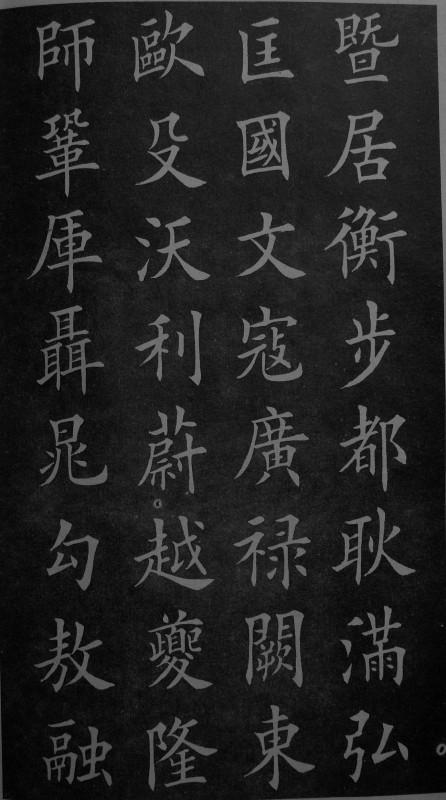 暨居衡步都耿滿弘
匡國文寇廣祿闕東
歐殳沃利蔚越夔隆
師鞏厙聶晁勾敖融